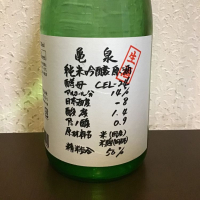 亀泉
生
純米吟醸原酒
酵母 CEL-24
アルコール分 14%
日本酒度 -8
酸度 1.4
アミノ酸 0.9
原材料名 米(国産)
米麹(国産米)
精米歩合 50%